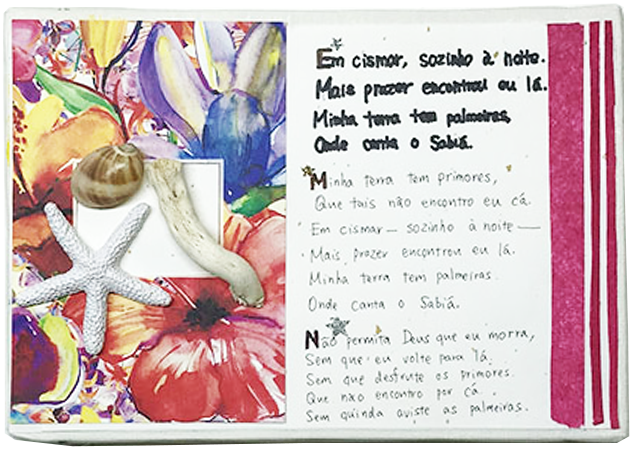 Em cismar, sozinho à noite.
Mais prazer encontrou eu lá.
Minha terra tem palmeiras,
Onde canta o Sabiá.
Minha terra tem primores,
Que tais não encontro eu cá.
Em cismar — sozinho à noite —
Mais prazer encontrou eu lá.
Minha terra tem palmeiras.
Onde canta o Sabiá.
Não permita Deus que eu morra,
Sem que eu volte para lá.
Sem que desfrute os primores.
Que não encontro por cá.
Sem quinda aviste as palmeiras.